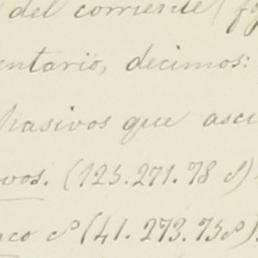 del corriente (fo
entario, decimos:
pasivos que asci
vos. (125.271.78 $)
nco c$ (41.273.73$)